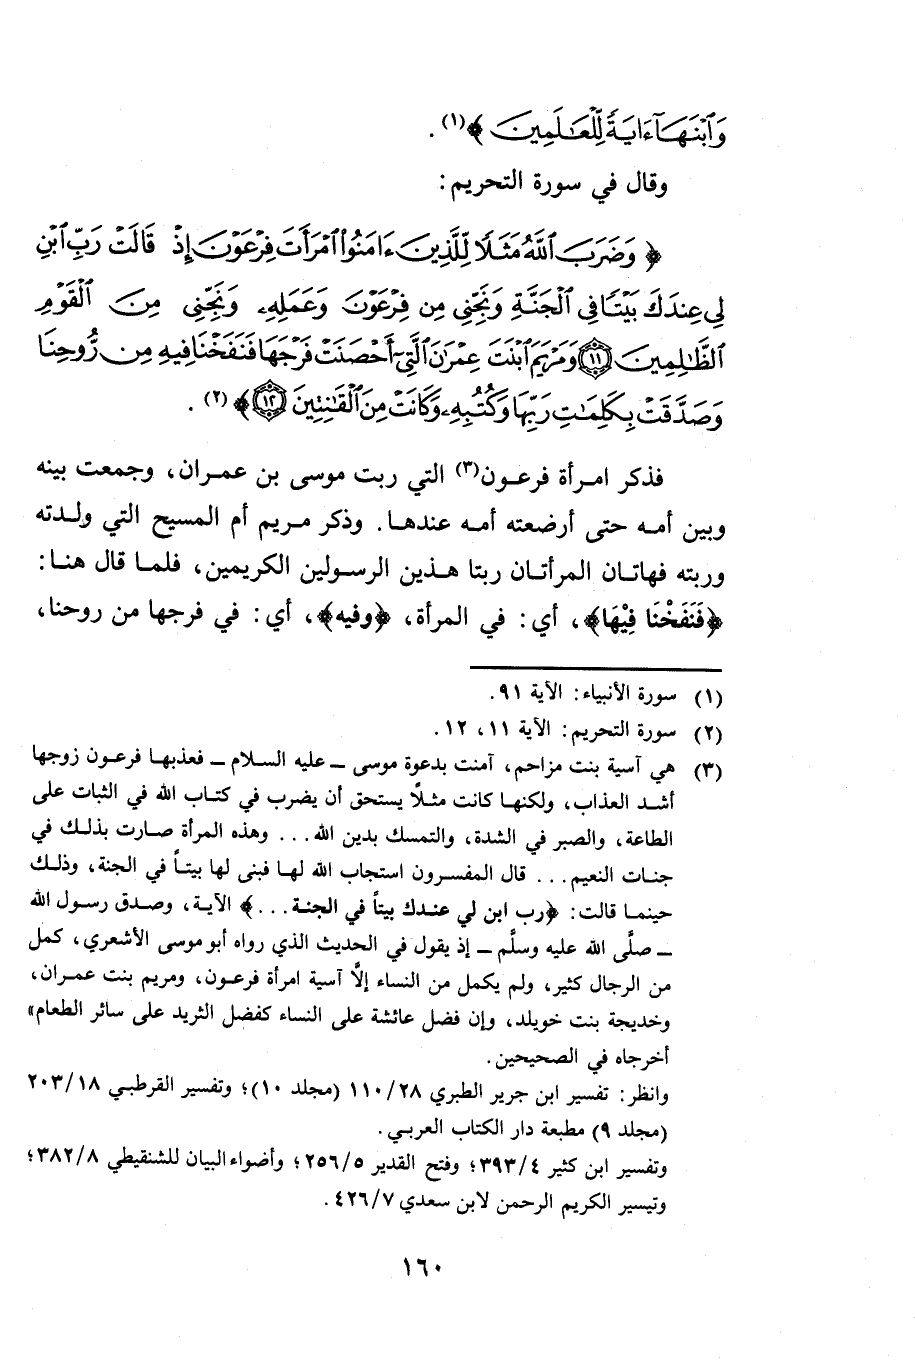 وَٱبْنَهَآ ءَايَةً لِّلْعَـٰلَمِينَ ﴾(١) .
وقال في سورة التحريم:
﴿ وَضَرَبَ ٱللَّهُ مَثَلًا لِّلَّذِينَ ءَامَنُوا۟ ٱمْرَأَتَ فِرْعَوْنَ إِذْ قَالَتْ رَبِّ ٱبْنِ
لِي عِندَكَ بَيْتًا فِي ٱلْجَنَّةِ وَنَجِّنِي مِن فِرْعَوْنَ وَعَمَلِهِۦ وَنَجِّنِي مِنَ ٱلْقَوْمِ
ٱلظَّـٰلِمِينَ ١١ وَمَرْيَمَ ٱبْنَتَ عِمْرَٰنَ ٱلَّتِيٓ أَحْصَنَتْ فَرْجَهَا فَنَفَخْنَا فِيهِ مِن رُّوحِنَا
وَصَدَّقَتْ بِكَلِمَـٰتِ رَبِّهَا وَكُتُبِهِۦ وَكَانَتْ مِنَ ٱلْقَـٰنِتِينَ ١٢ ﴾(٢) .
فذكر امرأة فرعون(٣) التي ربت موسى بن عمران، وجمعت بينه
وبين أمه حتى أرضعته أمه عندها. وذكر مريم أم المسيح التي ولدته
وربته فهاتان المرأتان ربتا هذين الرسولين الكريمين، فلما قال هنا:
﴿فَنَفَخْنَا فِيْهَا﴾، أي: في المرأة، ﴿وفيه﴾، أي: في فرجها من روحنا،
(١) سورة الأنبياء: الآية ٩١.
(٢) سورة التحريم: الآية ١١، ١٢.
(٣) هي آسية بنت مزاحم، آمنت بدعوة موسى ــ عليه السلام ــ فعذبها فرعون زوجها
أشد العذاب، ولكنها كانت مثلاً يستحق أن يضرب في كتاب الله في الثبات على
الطاعة، والصبر في الشدة، والتمسك بدين الله... وهذه المرأة صارت بذلك في
جنات النعيم... قال المفسرون استجاب الله لها فبنى لها بيتاً في الجنة، وذلك
حينما قالت: ﴿رب ابن لي عندك بيتاً في الجنة...﴾ الآية، وصدق رسول الله
ــ صلَّى الله عليه وسلَّم ــ إذ يقول في الحديث الذي رواه أبو موسى الأشعري، كمل
من الرجال كثير، ولم يكمل من النساء إلَّا آسية امرأة فرعون، ومريم بنت عمران،
وخديجة بنت خويلد، وإن فضل عائشة على النساء كفضل الثريد على سائر الطعام»
أخرجاه في الصحيحين.
وانظر: تفسير ابن جرير الطبري ١١٠/٢٨ (مجلد ١٠)؛ وتفسير القرطبي ٢٠٣/١٨
(مجلد ٩) مطبعة دار الكتاب العربي.
وتفسير ابن كثير ٣٩٣/٤؛ وفتح القدير ٢٥٦/٥؛ وأضواء البيان للشنقيطي ٣٨٢/٨؛
وتيسير الكريم الرحمن لابن سعدي ٤٢٦/٧.
١٦٠